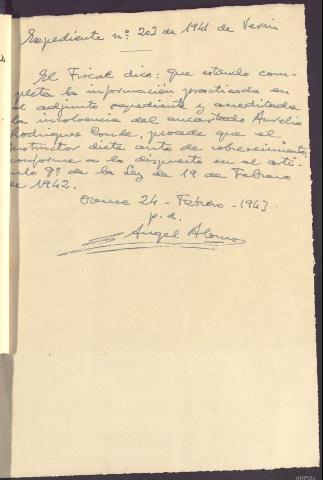 Expediente nº 203 de 1941 de Verin
El Fiscal dice: que estando com-
pleta la información practicada en
el adjunto expediente y acreditada
la insolvencia del encartado Aurelio
Rodriguez Conde, procede que el
instructor dicte auto de sobreseimiento,
conforme a lo dispuesto en el artí-
culo 8º de la Ley de 19 de Febrero
de 1942.
Orense 24 - Febrero - 1943
p. d.
Angel Alonso